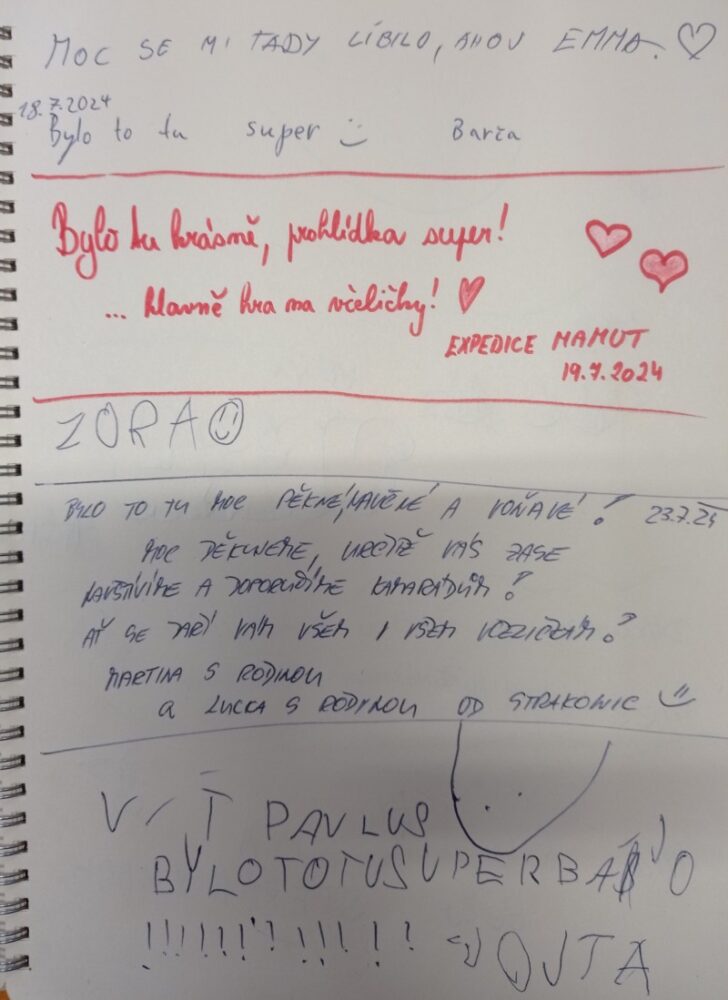 MOC SE MI TADY LÍBILO, AHOJ EMMA. ♡
18.7.2024
Bylo to tu super :) Barča
Bylo tu krásně, prohlídka super!
... hlavně hra na včeličky! ♡
EXPEDICE MAMUT
19.7.2024
ZORA ☺
BYLO TO TU MOC PĚKNÉ, NAUČNÉ A VOŇAVÉ! 23.7.24
MOC DĚKUJEME, URČITĚ VÁS ZASE
NAVŠTÍVÍME A DOPORUČÍME KAMARÁDŮM!
AŤ SE DAŘÍ VÁM VŠEM I VŠEM VČELIČKÁM!
MARTINA S RODINOU
a LUCKA S RODINOU OD STRAKONIC :)
VÍT PAVLUS
BYLOTOTUSUPERBA O
!!!!!!!!!!! VOJTA